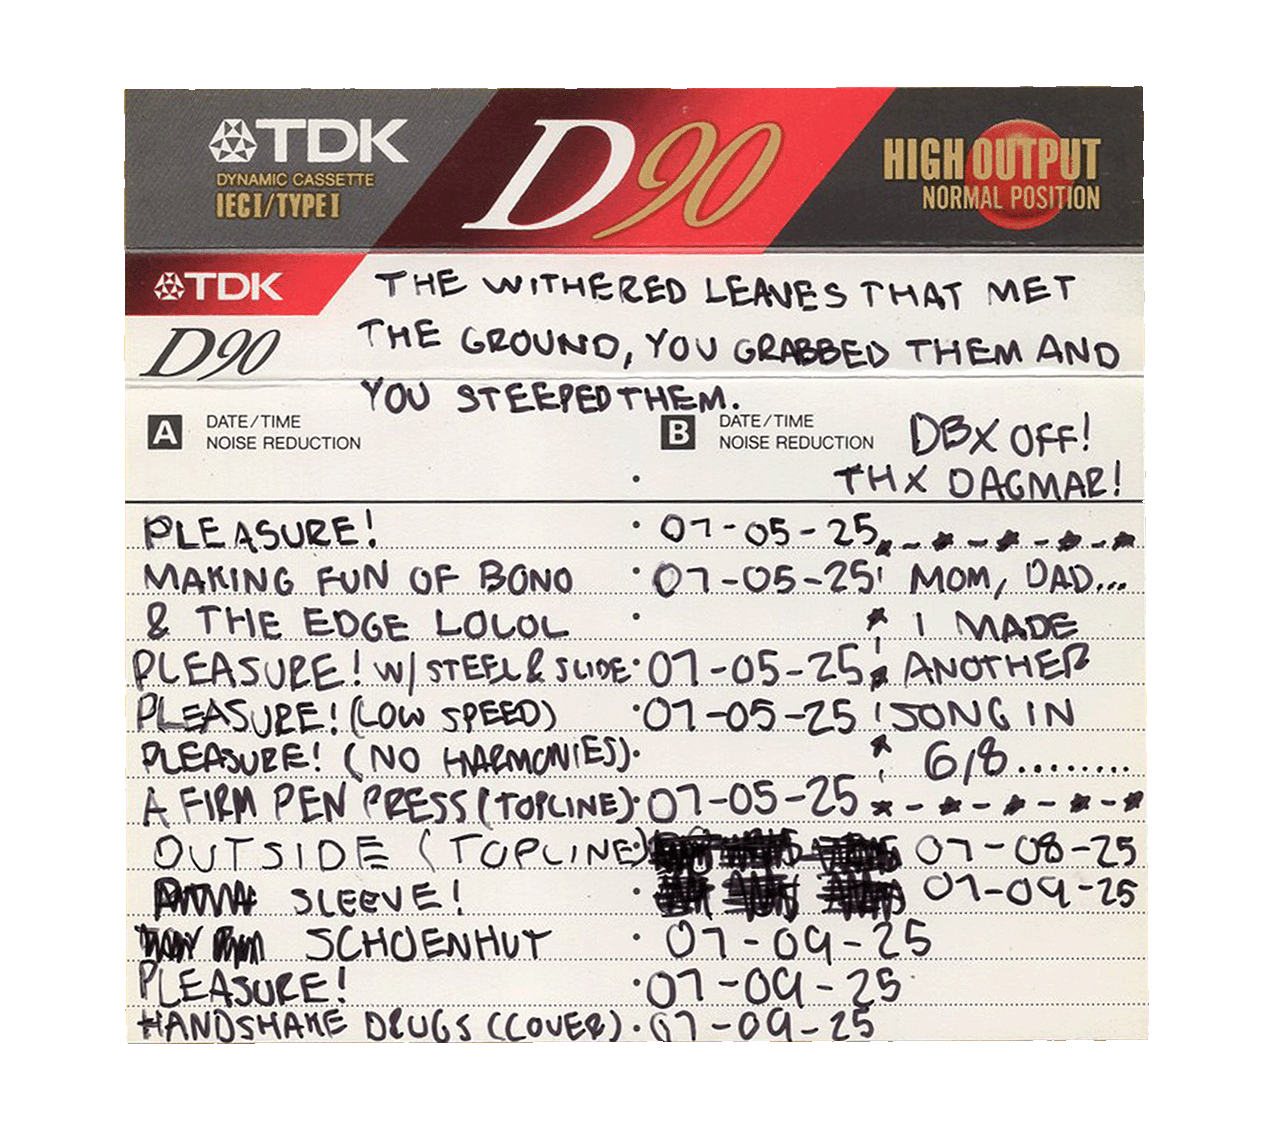 TDK D90 HIGH OUTPUT
DYNAMIC CASSETTE NORMAL POSITION
IECI/TYPE I
TDK THE WITHERED LEAVES THAT MET
D90 THE GROUND, YOU GRABBED THEM AND
YOU STEEPED THEM.
A DATE/TIME B DATE/TIME DBX OFF!
NOISE REDUCTION NOISE REDUCTION
THX DAGMAR!
PLEASURE! 07-05-25
MAKING FUN OF BONO 07-05-25 MOM, DAD...
& THE EDGE LOLOL I MADE
PLEASURE! W/ STEEL & SLIDE 07-05-25 ANOTHER
PLEASURE! (LOW SPEED) 07-05-25 SONG IN
PLEASURE! (NO HARMONIES) 6/8........
A FIRM PEN PRESS (TOPLINE) 07-05-25
OUTSIDE (TOPLINE) 07-08-25
SLEEVE! 07-09-25
SCHOENHUT 07-09-25
PLEASURE! 07-09-25
HANDSHAKE DRUGS (COVER) 07-09-25